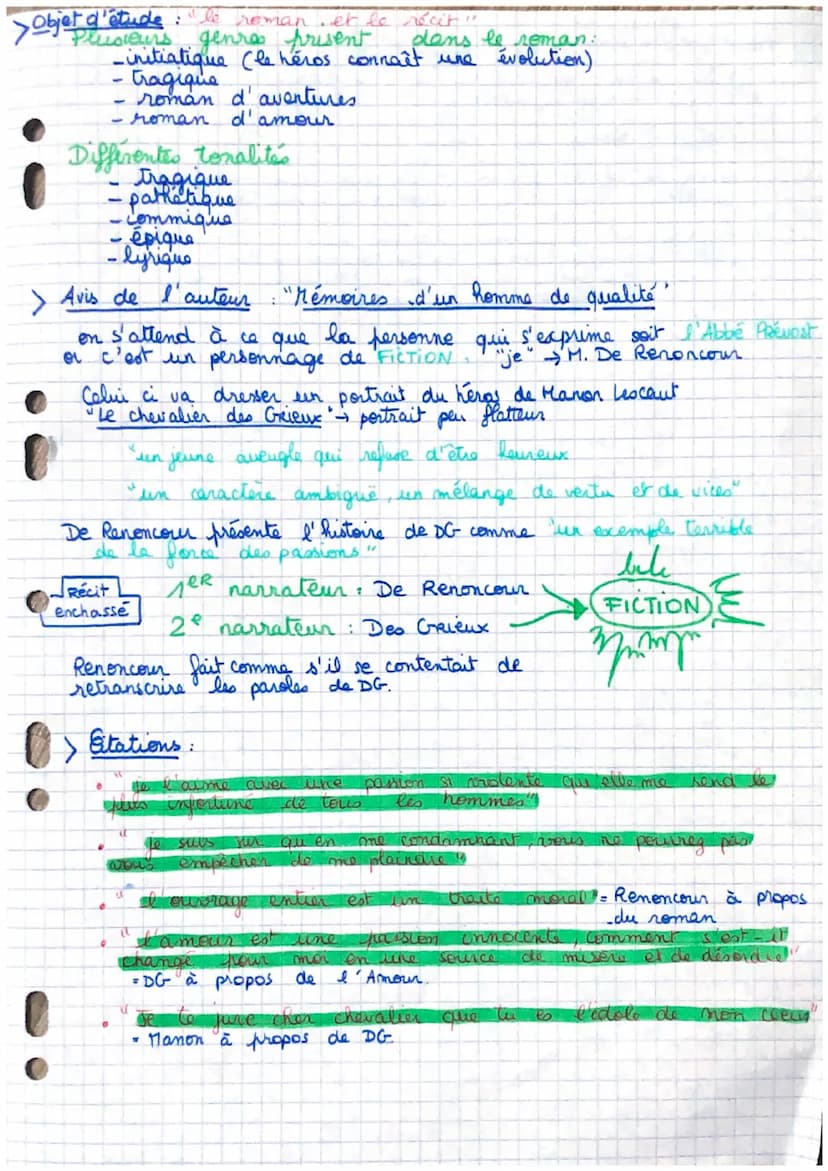 > Objet d'étude : "le roman et le récit"
Plusieurs genres présent dans le roman :
- initiatique (le héros connaît une évolution)
- tragique
- roman d'aventures
- roman d'amour
Différentes tonalités
- Tragique
- pathétique
- commique
- épique
- lyrique
> Avis de l'auteur : "Mémoires d'un homme de qualité"
on s'attend à ce que la personne qui s'exprime soit l'Abbé Prévost
or c'est un personnage de FICTION. "je" → M. De Renoncour
Celui ci va dresser un portrait du héros de Manon Lescaut
"Le chevalier des Grieux" → portrait peu flatteur
"un jeune aveugle qui refuse d'être heureux
"un caractère ambiguë, un mélange de vertu et de vices"
De Renoncour présente l'histoire de DG comme "un exemple terrible
de la force des passions"
Récit
enchassé
1ER narrateur : De Renoncour
2e narrateur : Des Grieux
FICTION
Renoncour fait comme s'il se contentait de
retranscrire les paroles de DG.
> Citations :
• "je l'aime avec une passion si violente qu'elle me rend le
plus infortuné de tous les hommes"
• "je suis sur qu'en me condamnant, vous ne pourrez pas
vous empêcher de me plaindre"
• "l'ouvrage entier est un traité moral" = Renoncour à propos
du roman
• "L'amour est une passion innocente, comment s'est-il
changé pour moi en une source de misère et de désordre"
= DG à propos de l'Amour.
• "Je te jure cher chevalier que tu es l'idole de mon coeur"
= Manon à propos de DG